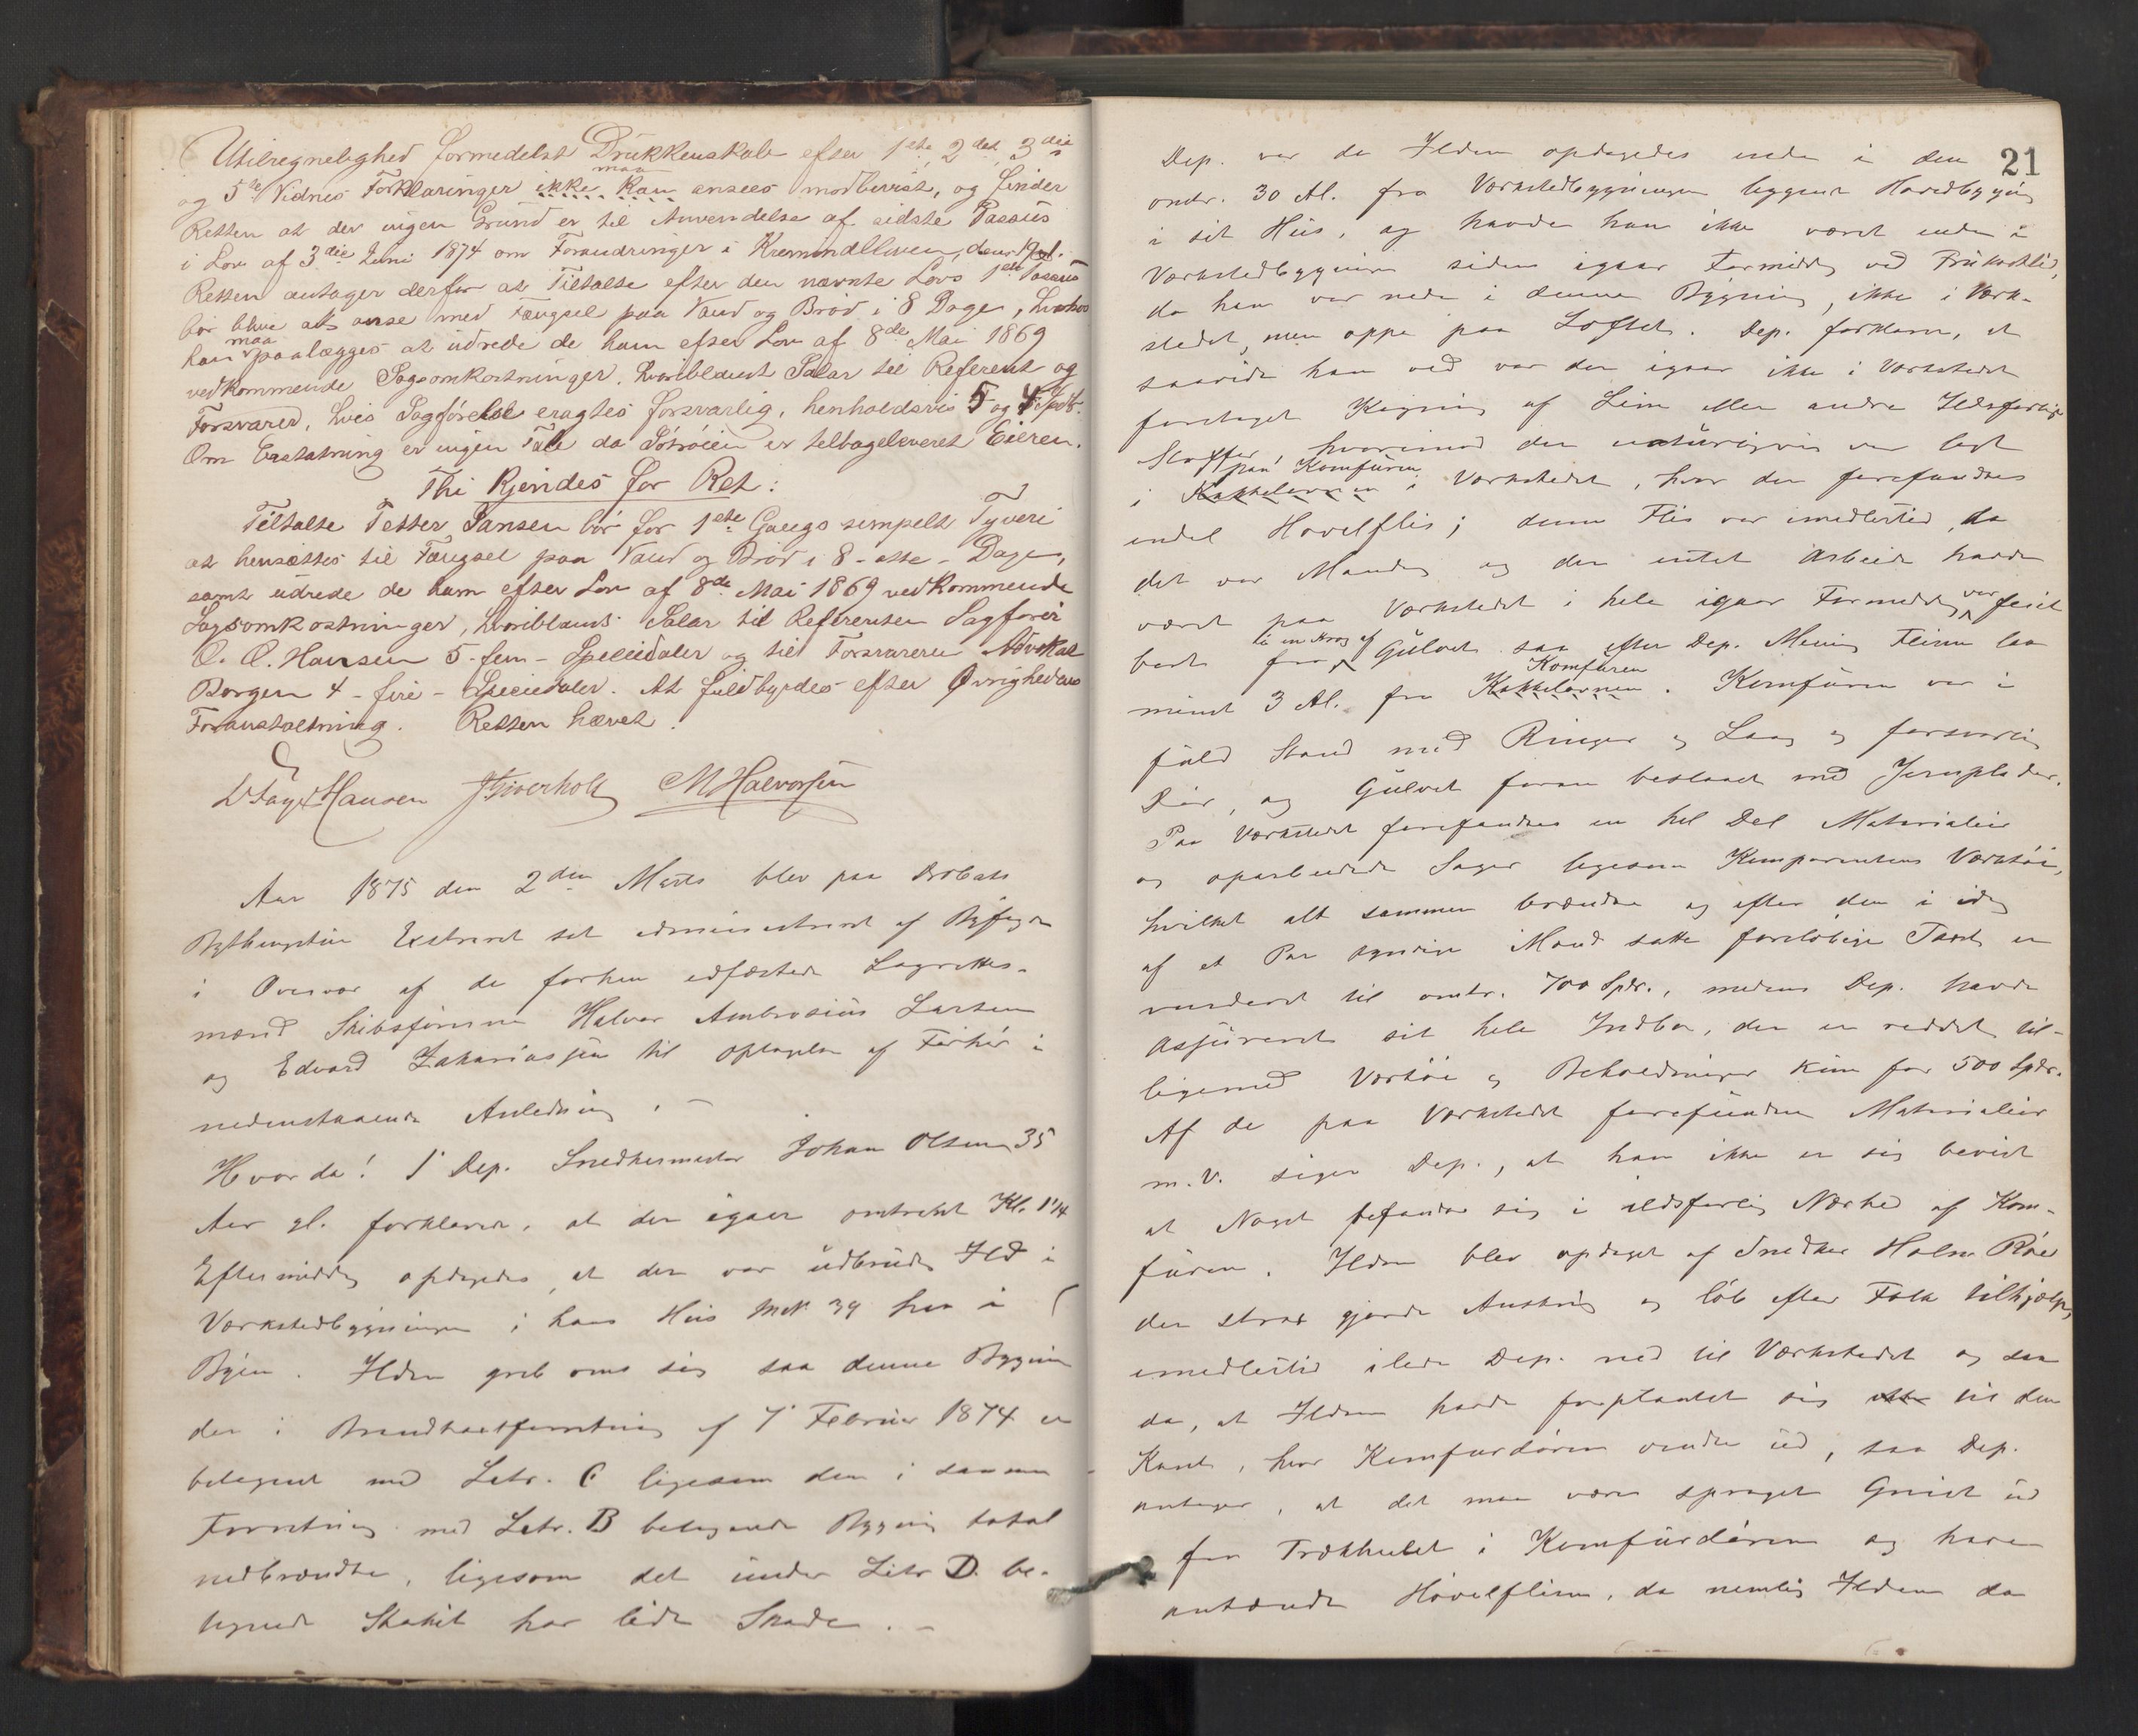 Utilregnelighed formedelst Drukkenskab efter 1ste, 2det, 3die
og 5te Vidnes Forklaringer ikke maa kan ansees modbevist, og finder
Retten at der ingen Grund er til Anvendelse af sidste Passus
i Lov af 3die Juni 1874 om Forandringer i Kriminalloven,
Retten antager derfor at Tiltalte efter den nævnte Lovs 1ste Passus
bør blive at anse med Fængsel paa Vand og Brød i 8 Dage, hvorhos
han maa paalægges at udrede de ham efter Lov af 8de Mai 1869
vedkommende Sagsomkostninger, hvoriblandt Salar til Referent og
Forsvarer, hvis Sagførelse eragtes forsvarlig, henholdsvis 5 og 4 Spdl.
Om Erstatning er ingen Tale da Sørøien er tilbageleveret Eieren.
Thi Kjendes for Ret:
Tiltalte Petter Jansen bør for 1ste Gangs simpelt Tyveri
at hensættes til Fængsel paa Vand og Brød i 8 - otte - Dage,
samt udrede de ham efter Lov af 8de Mai 1869 vedkommende
Sagsomkostninger, hvoriblandt Salar til Referenten Sagfører
O. O. Hansen 5 - fem - Speciedaler og til Forsvareren Advokat
Borgen 4 - fire - Speciedaler. At fuldbyrdes efter Øvrighedens
Foranstaltning. Retten hævet.
Hansen M Halvorsen
Aar 1875 den 2den Marts blev paa Drøbaks
Bythingstue Extraret sat administreret af Byfogden
i Overvær af de forhen edfæstede Lagrettes-
mænd Skibsfører Halvor Ambrosius Larsen
og Edvard Zakariassen til Optagelse af Forhør i
nedenstaaende Anledning. -
Hvorda! 1' Dep. Snedkermester Johan Olsen 35
Aar gl. forklarer, at der igaar omtrent Kl. 1 1/4
Eftermiddag opdagedes, at der var udbrudt Ild i
Værkstedbygningen i hans Hus Mtr. 39 her i
Byen. Ilden greb om sig saa denne Bygning
der i Brandtaxtforretning af 7' Februar 1874 er
betegnet med Letr. C ligesom den i samme
Forretning med Letr. B betegnede Bygning totalt
nedbrændte, ligesom det under Litr D. be-
tegnede Stakit har lidt Skade. -
21
Dep. var da Ilden opdagedes inde i den
omtr. 30 Al. fra Værkstedbygningen liggende Hovedbygning
i sit Hus, og havde han ikke været inde i
Værkstedbygningen siden igaar Formiddag ved Frukosttid,
da han var nede i denne Bygning, ikke i Værk-
stedet, men oppe paa Loftet. Dep. forklarer, at
saavidt han ved var der igaar ikke i Værkstedet
foretaget Kogning af Lim eller andre Ildsfarlige
Stoffer, hvorimod der naturligvis var lagt
i Kakkelovnen paa Komfuren i Værkstedet, hvor der forefandtes
endel Høvelflis; denne Flis var imedlertid, da
det var Mandag og der intet Arbeide havde
været paa Værkstedet i hele igaar Formiddag var feiet
bort fra til en Krog af Gulvet saa efter Dep. Mening Flisen laa
mindst 3 Al. fra Kakkelovnen Komfuren. Komfuren var i
fuld Stand med Ringer og Laag og forsvarlig
Dør, og Gulvet foran beslaaet med Jernplader.
Paa Værkstedet forefandtes en hel Del Materialier
og oparbeidede Sager ligesom Komparentens Værktøi,
hvilket alt sammen brændte og efter den i idag
af et Par kyndige Mænd satte foreløbige Taxt er
vurderet til omtr. 700 Spdr., medens Dep. havde
assureret sit hele Indbo, der er reddet til-
ligemed Værktøi og Beholdninger kun for 500 Spdr.
Af de paa Værkstedet forefundne Materialier
m.v. siger Dep., at han ikke er sig bevidst
at Noget befandt sig i ildsfarlig Nærhed af Kom-
furen. Ilden blev opdaget af Snedker Holm Røer
der strax gjorde Anskrig og løb efter Folk tilhjælp,
imedlertid ilede Dep. ned til Værkstedet og saa
da, at Ilden havde forplantet sig til den
Kant, hvor Komfurdøren vendte ud, saa Dep.
antager, at det maa være spraget Gnist ud
fra Trækhullet i Komfurdøren og have
antændt Høvelflisen, da nemlig Ilden da